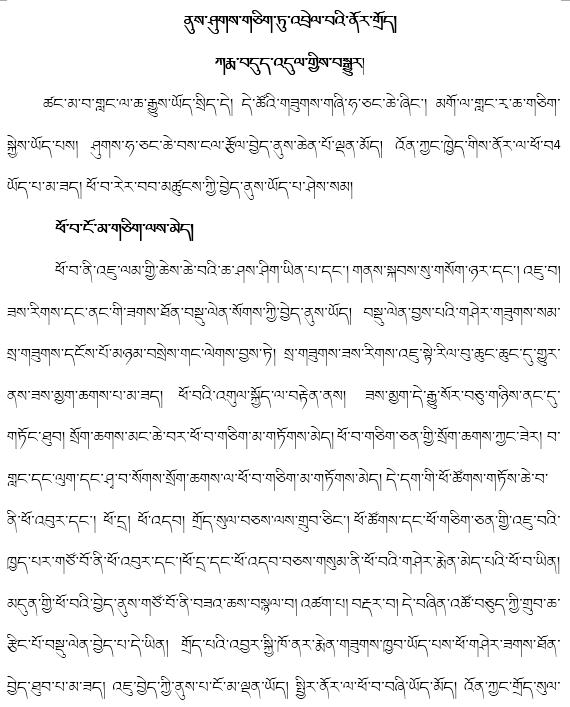 ནུས་ཤུགས་གཅིག་ཏུ་འབྲེལ་བའི་ནོར་གྲོད།
ཀརྨ་བདུད་འདུལ་གྱིས་བསྒྱུར།
ཚང་མ་བ་གླང་ལ་ཆ་རྒྱུས་ཡོད་སྲིད་དེ། དེ་ཚོའི་གཟུགས་གཞི་ཧ་ཅང་ཆེ་ཞིང་། མགོ་ལ་གླང་རྭ་ཆ་གཅིག་
སྐྱེས་ཡོད་པས། ཤུགས་ཧ་ཅང་ཆེ་བས་ངལ་རྩོལ་བྱེད་ནུས་ཆེན་པོ་ལྡན་མོད། འོན་ཀྱང་ཁྱེད་གིས་ནོར་ལ་ཕོ་བ4
ཡོད་པ་མ་ཟད། ཕོ་བ་རེར་བབ་མཚུངས་ཀྱི་བྱེད་ནུས་ཡོད་པ་ཤེས་སམ།
ཕོ་བ་ངོ་མ་གཅིག་ལས་མེད།
ཕོ་བ་ནི་འཇུ་ལམ་གྱི་ཆེས་ཆེ་བའི་ཆ་ཤས་ཤིག་ཡིན་པ་དང་། གནས་སྐབས་སུ་གསོག་ཉར་དང་། འཇུ་བ།
ཟས་རིགས་དང་ནང་གི་ཟགས་ཐོན་བསྡུ་ལེན་སོགས་ཀྱི་བྱེད་ནུས་ཡོད། བསྡུ་ལེན་བྱས་པའི་གཤེར་གཟུགས་སམ་
སྲ་གཟུགས་དངོས་པོ་མཉམ་བསྲེས་གང་ལེགས་བྱས་ཏེ། སྲ་གཟུགས་ཟས་རིགས་འཇུ་སྟེ་རིལ་བུ་ཆུང་ཆུང་དུ་གྱུར་
ནས་ཟས་མྱག་ཆགས་པ་མ་ཟད། ཕོ་བའི་འགུལ་སྐྱོད་ལ་བརྟེན་ནས། ཟས་མྱག་དེ་རྒྱུ་སོར་བཅུ་གཉིས་ནང་དུ་
གཏོང་ཐུབ། སྲོག་ཆགས་མང་ཆེ་བར་ཕོ་བ་གཅིག་མ་གཏོགས་མེད། ཕོ་བ་གཅིག་ཅན་གྱི་སྲོག་ཆགས་ཀྱང་ཟེར། བ་
གླང་དང་ལུག་དང་ཤྭ་བ་སོགས་སྲོག་ཆགས་ལ་ཕོ་བ་གཅིག་མ་གཏོགས་མེད། དེ་དག་གི་ཕོ་ཚོགས་གཏོས་ཆེ་བ་
ནི་ཕོ་འབུར་དང་། ཕོ་དྲ། ཕོ་འདབ། གྲོད་སུལ་བཅས་ལས་གྲུབ་ཅིང་། ཕོ་ཚོགས་དང་ཕོ་གཅིག་ཅན་གྱི་འཇུ་བའི་
ཁྱད་པར་གཙོ་བོ་ནི་ཕོ་འབུར་དང་།ཕོ་དྲ་དང་ཕོ་འདབ་བཅས་གསུམ་ནི་ཕོ་བའི་གཤེར་རྨེན་མེད་པའི་ཕོ་བ་ཡིན།
མདུན་གྱི་ཕོ་བའི་བྱེད་ནུས་གཙོ་བོ་ནི་བཟའ་ཆས་བསྙལ་བ། འཚག་པ། བརྡར་བ། དེ་བཞིན་འཚོ་བཅུད་ཀྱི་གྲུབ་ཆ་
རྩིང་པོ་བསྡུ་ལེན་བྱེད་པ་དེ་ཡིན། གྲོད་པའི་འབྱར་སྐྱི་ཁོ་ནར་རྨེན་གཟུགས་ཁྱབ་ཡོད་པས་ཕོ་གཤེར་ཟགས་ཐོན་
བྱེད་ཐུབ་པ་མ་ཟད། འཇུ་བྱེད་ཀྱི་ནུས་པ་ངོ་མ་ལྡན་ཡོད། སྤྱིར་ནོར་ལ་ཕོ་བ་བཞི་ཡོད་མོད། འོན་ཀྱང་གྲོད་སུལ་